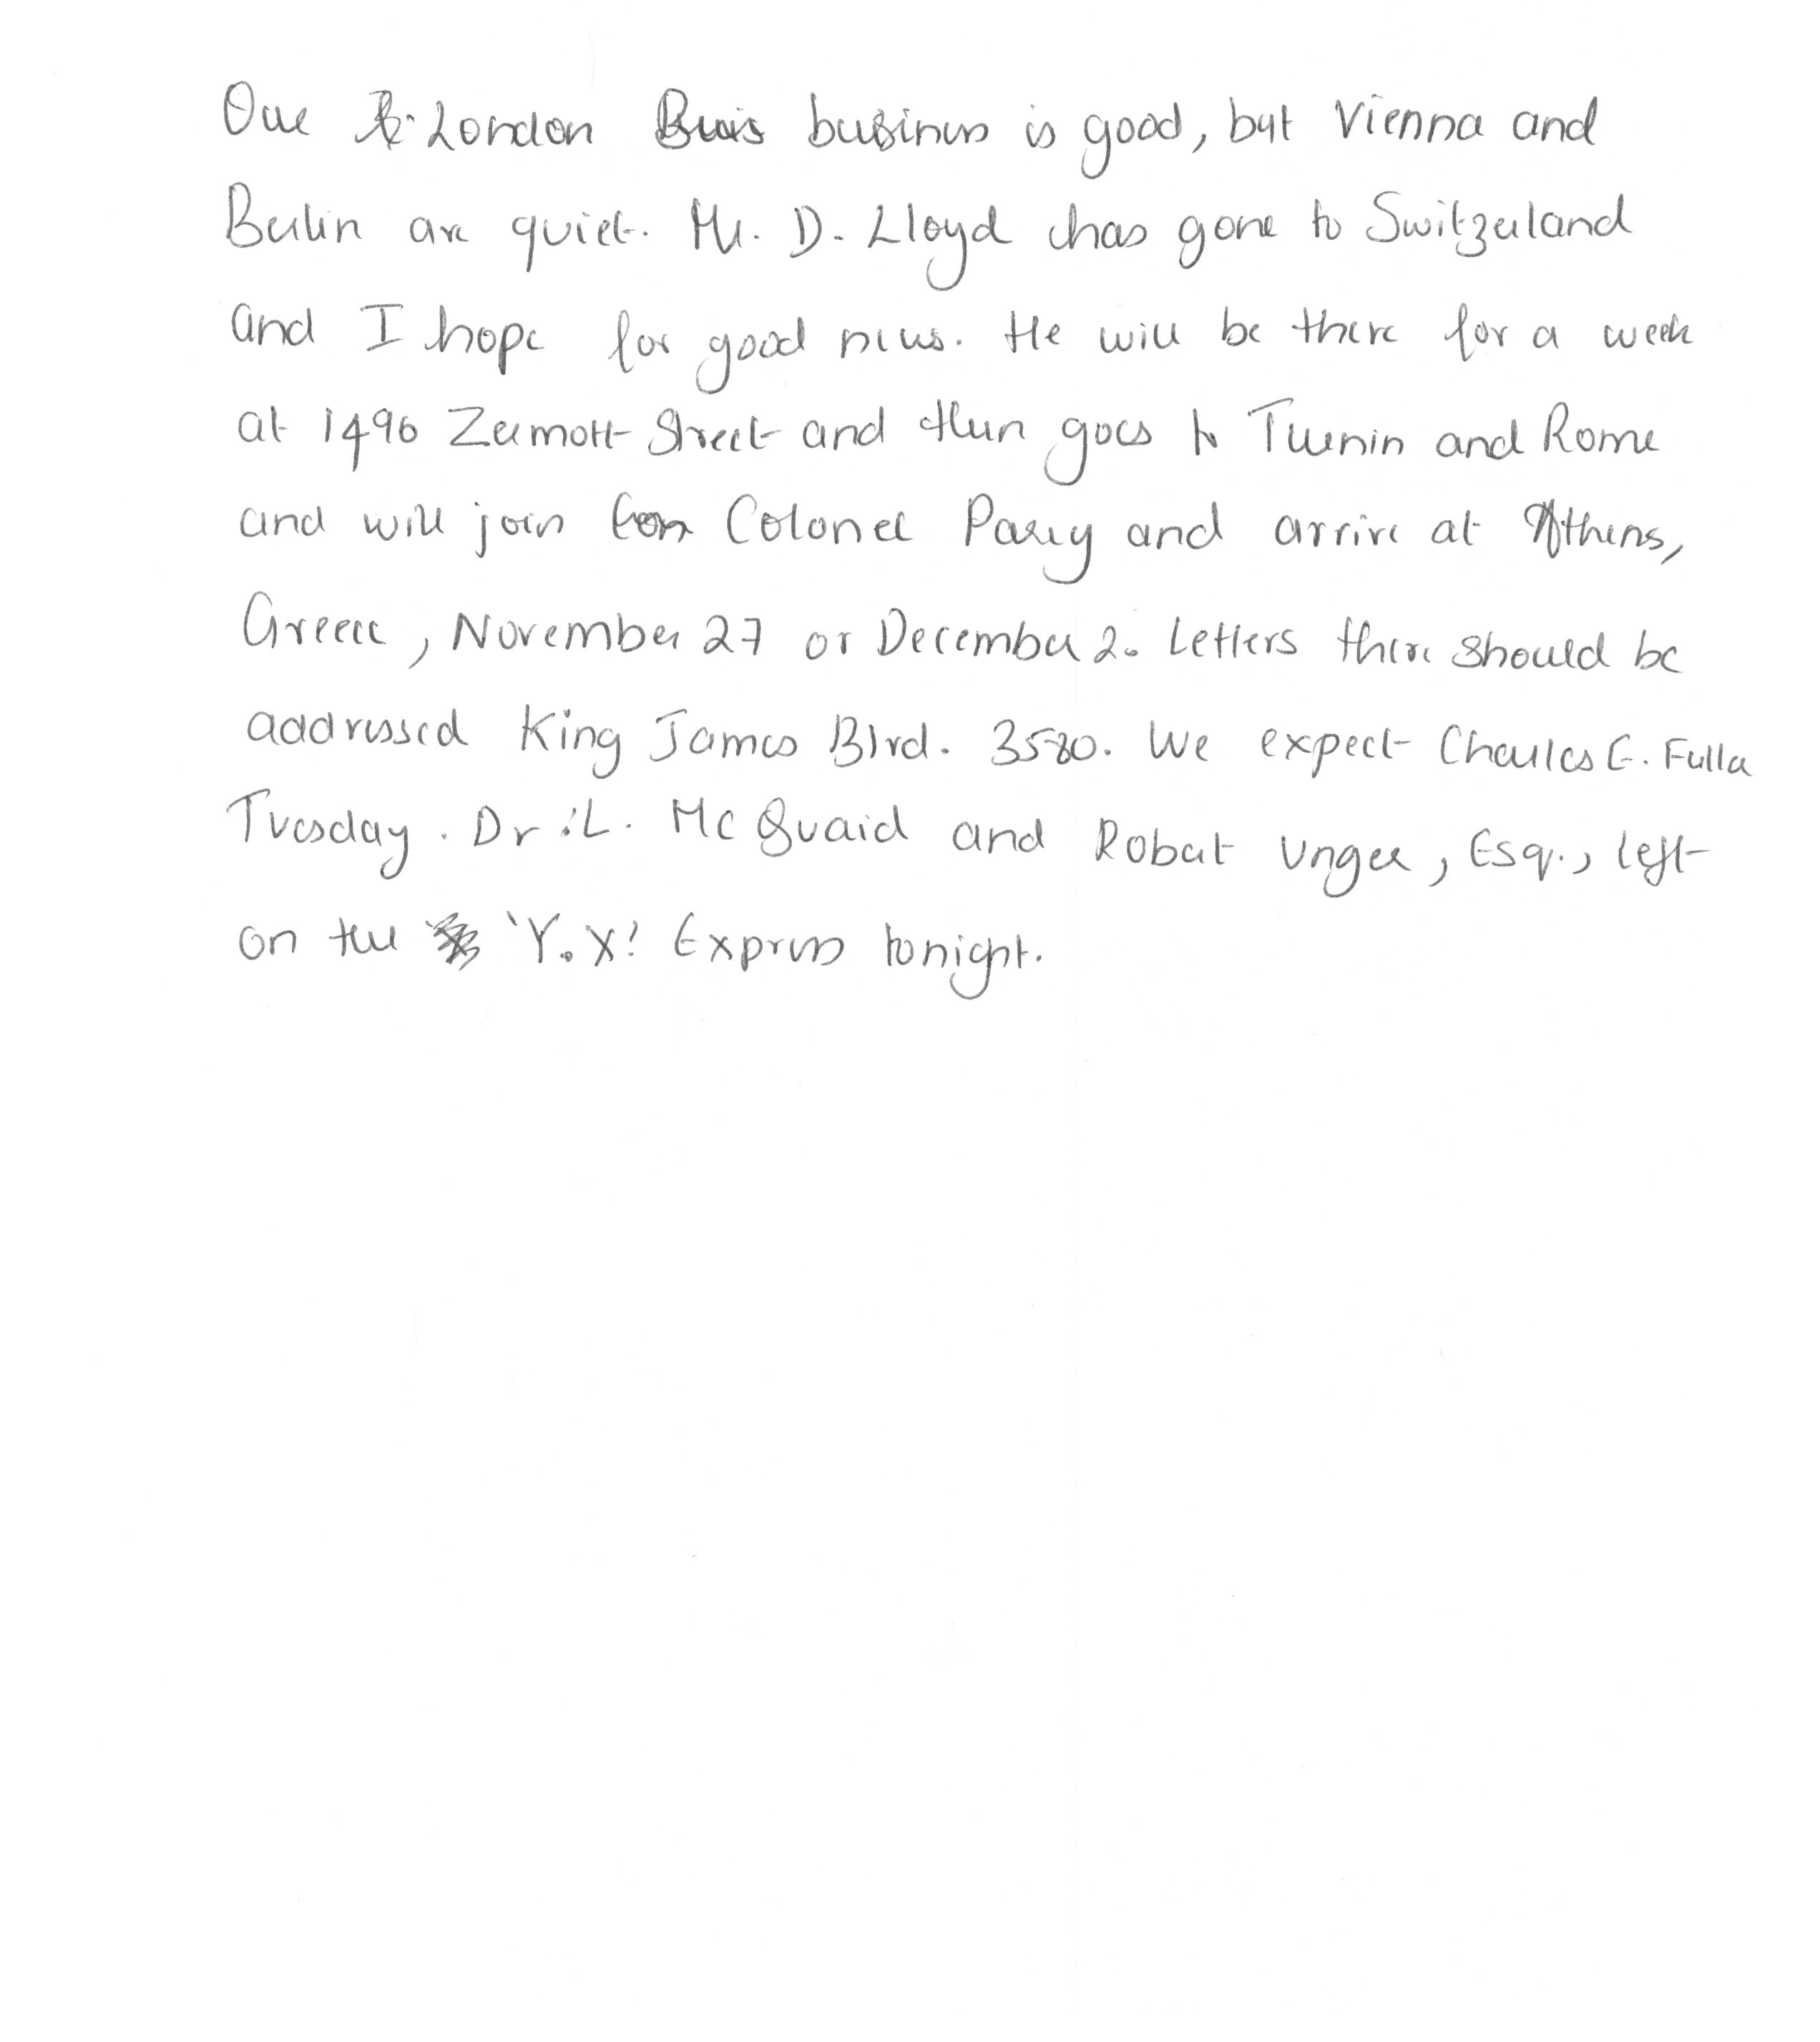 Our London business is good, but Vienna and
Berlin are quiet. Mr. D. Lloyd has gone to Switzerland
and I hope for good news. He will be there for a week
at 1496 Zermott Street and then goes to Turnin and Rome
and will join Colonel Parry and arrive at Athens,
Greece, November 27 or December 2. Letters there should be
addressed King James Blvd. 3580. We expect Charles E. Fuller
Tuesday. Dr. L. McQuaid and Robert Unger, Esq., left
on the 'Y.X.' Express tonight.